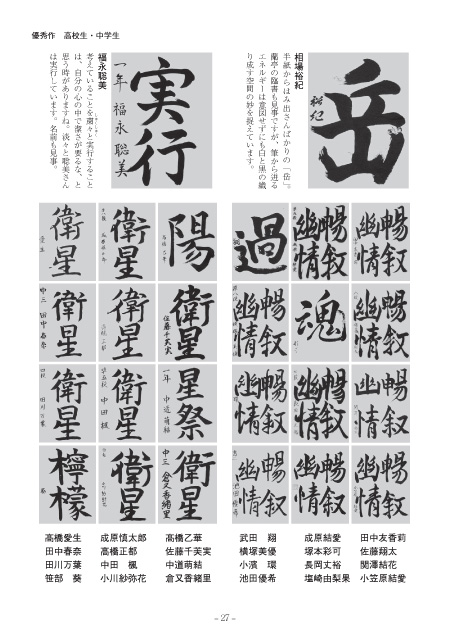 優秀作　高校生・中学生
岳
裕紀
相場裕紀
半紙からはみ出さんばかりの「岳」。
蘭亭の臨書も見事ですが、筆から迸る
エネルギーは意図せずにも白と黒の織
り成す空間の妙を捉えています。
実行
一年 福永聡美
福永聡美
考えていることを粛々と実行すること
は、自分の心の中で潔さが要るな、と
思う時がありますね。淡々と聡美さん
は実行しています。名前も見事。
暢叙
幽情
暢叙
幽情
過
暢叙
幽情
魂
暢叙
幽情
暢叙
幽情
暢叙
幽情
暢叙
幽情
暢叙
幽情
暢叙
幽情
暢叙
幽情
陽
衛星
衛星
衛星
佐藤千美実
衛星
衛星
中三 田中春奈
星祭
一年 中道萌結
衛星
中田楓
衛星
衛星
中三 倉又香緒里
衛星
檸檬
田中友香莉
佐藤翔太
関澤結花
小笠原結愛
成原結愛
塚本彩可
長岡丈裕
塩崎由梨果
武田　翔
横塚美優
小濱　環
池田優希
高橋乙華
佐藤千美実
中道萌結
倉又香緒里
成原慎太郎
高橋正都
中田　楓
小川紗弥花
高橋愛生
田中春奈
田川万葉
笹部　葵
- 27 -